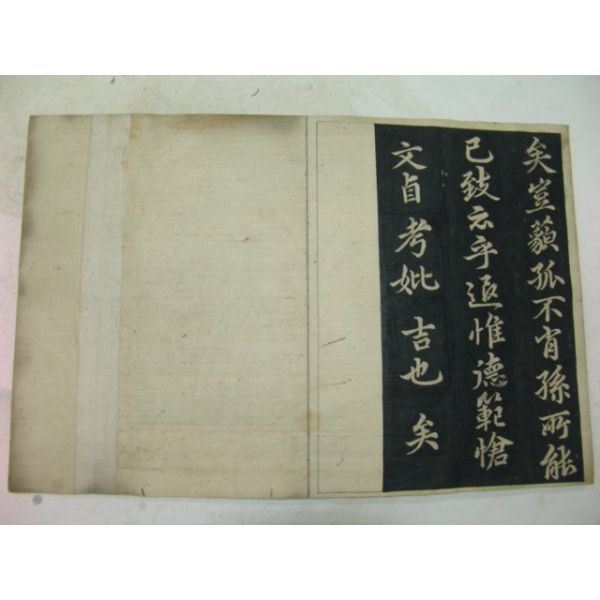 矣豈藐孤不肖孫所能
已致示乎遐惟德範愴
文貞考妣吉也矣